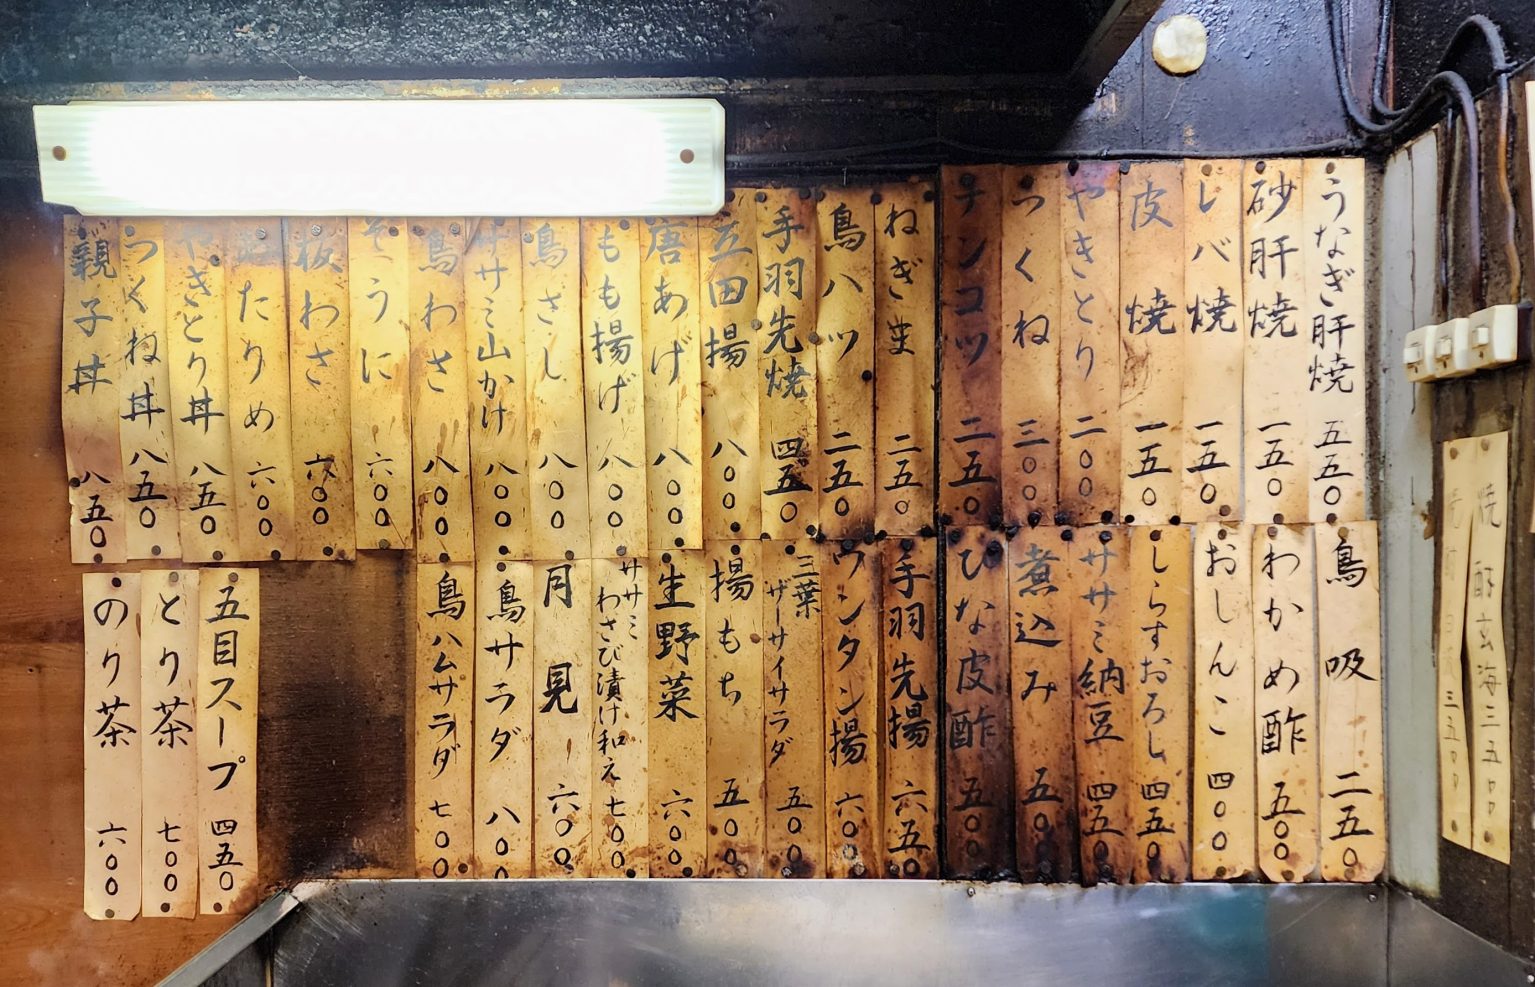 うなぎ肝焼 五五〇
砂肝焼 一五〇
レバ焼 一五〇
皮焼 一五〇
やきとり 二〇〇
つくね 三〇〇
ナンコツ 二五〇
ねぎま 二五〇
鳥ハツ 二五〇
手羽先焼 四五〇
立田揚 八〇〇
唐あげ 八〇〇
もも揚げ 八〇〇
鳥さし 八〇〇
ササミ山かけ 八〇〇
鳥わさ 八〇〇
そうに 六〇〇
板わさ 六〇〇
たりめ 六〇〇
やきとり丼 八五〇
つくね丼 八五〇
親子丼 八五〇
鳥吸 二五〇
わかめ酢 五〇〇
おしんこ 四〇〇
しらすおろし 四五〇
ササミ納豆 四五〇
煮込み 五〇〇
ひな皮酢 五〇〇
手羽先揚 六五〇
ワンタン揚 六〇〇
三葉ザーサイサラダ 五〇〇
揚もち 五〇〇
生野菜 六〇〇
ササミわさび漬け和え 七〇〇
月見 六〇〇
鳥サラダ 八〇〇
鳥ハムサラダ 七〇〇
五目スープ 四五〇
とり茶 七〇〇
のり茶 六〇〇
焼酎玄海 三五〇〇
三五〇〇